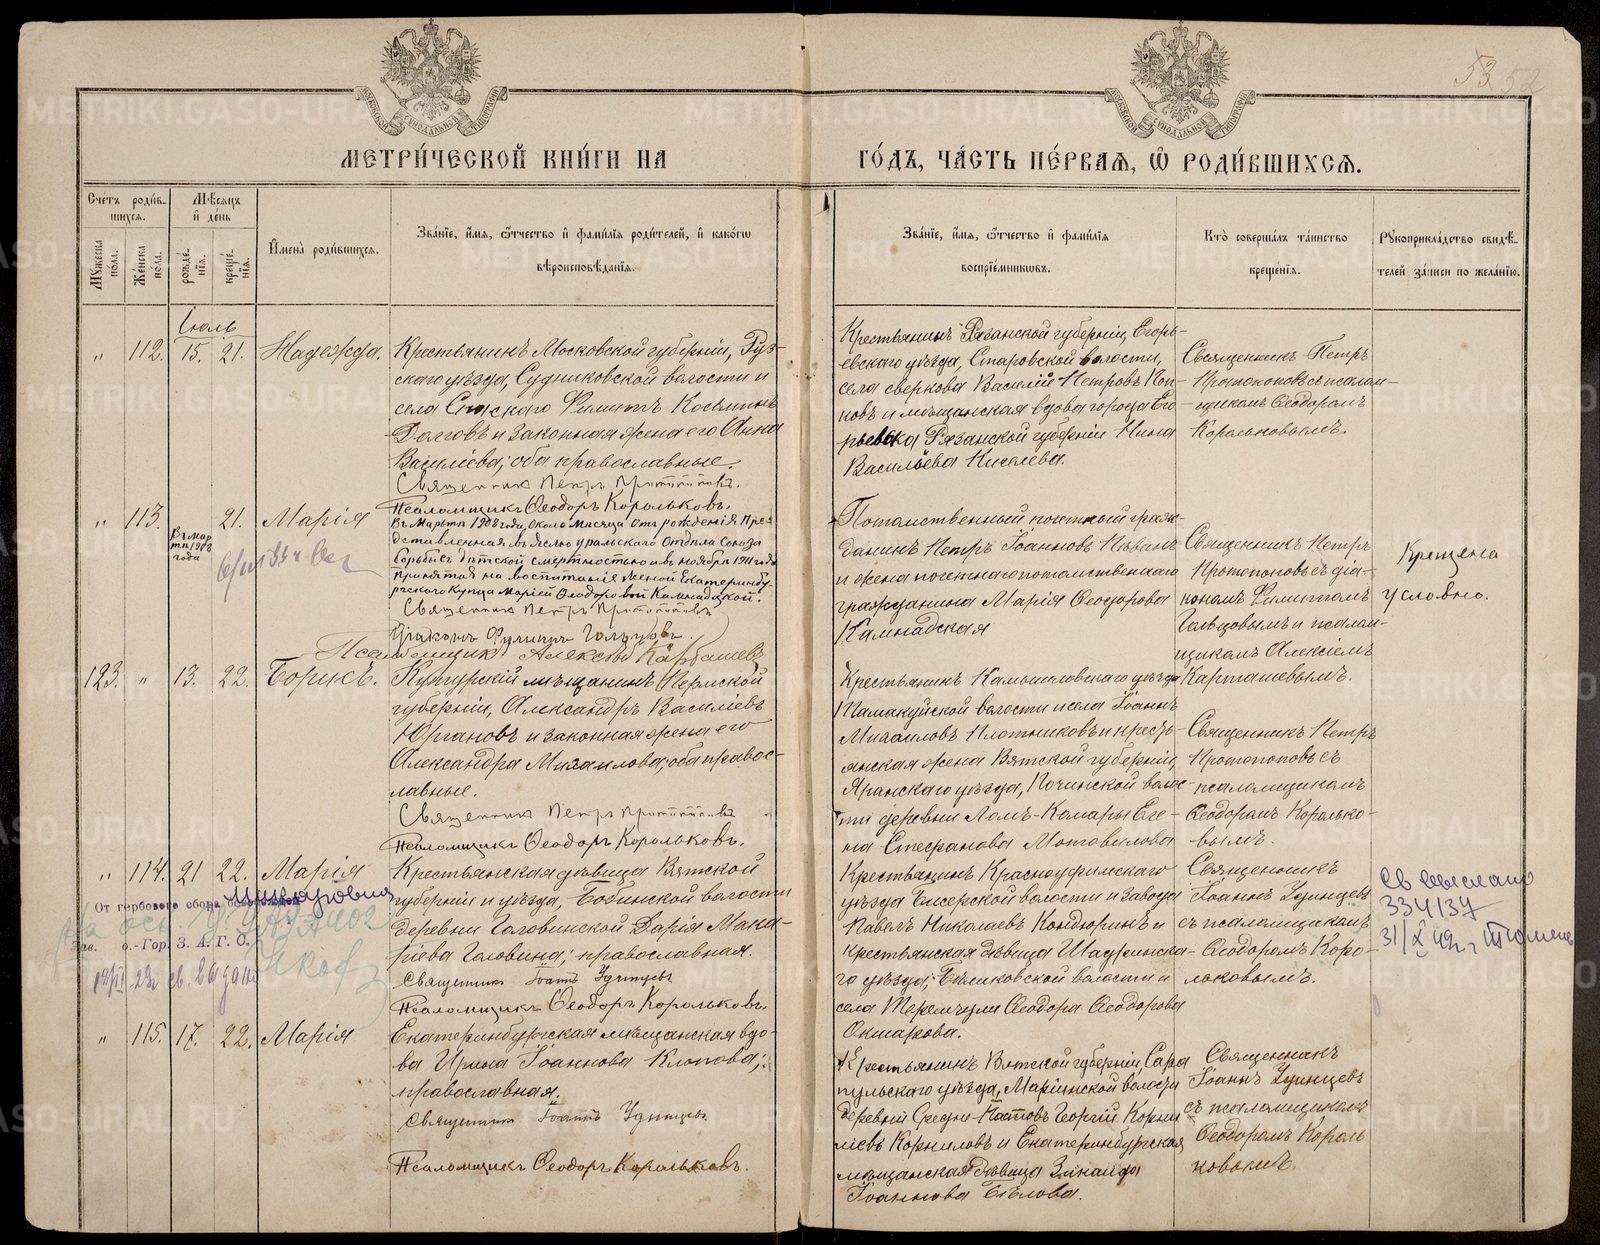 53 52
МЕТРИ́ЧЕСКОЙ КНИ́ГИ НА ГО́ДЪ, ЧА́СТЬ ПЕ́РВАЯ, Ѡ РОДИ́ВШИХСЯ.
Сче́тъ роди́в-
шихся.
Мѣ́сяцъ
и де́нь
Му́жеска
по́ла.
Же́нска
по́ла.
рожде́-
нія.
креще́-
нія.
Имена̀ роди́вшихся.
Зва́ніе, и́мя, ѻ́тчество и фами́лія роди́телей, и како́гѡ
вѣроисповѣ́данія.
Зва́ніе, и́мя, ѻ́тчество и фами́лія
воспріе́мникѡвъ.
Кто̀ соверша́лъ та́инство
креще́нія.
Рꙋкоприкла́дство свидѣ́-
телей за́писи по жела́нію.
Іюль
„ 112. 15. 21. Надежда.
Крестьянинъ Московской губерніи, Руз-
скаго уѣзда, Судниковской волости и
села Спасскаго Филиппъ Косьминъ
Долговъ и законная жена его Анна
Василіева; оба православные.
Священникъ Петръ Протопоповъ.
Псаломщикъ Ѳеодоръ Корольковъ.
Крестьянинъ Рязанской губерніи, Егорь-
евскаго уѣзда, Старовской волости,
села сверкова Василій Петровъ Поп-
ковъ и мѣщанская вдова города Его
рьевска Рязанской губерніи Нина
Васильева Киселева.
Священникъ Петръ
Протопоповъ съ псалом-
щикомъ Ѳеодоромъ
Корольковымъ.
„ 113. Въ мар
тѣ 1908
года 21. Марія
Въ Мартѣ 1908 года, около мѣсяца отъ рожденія пред
ставленная въ Ясли уральскаго Отдѣла Союза
борьбы съ дѣтской смертностью и въ ноябрѣ 1911 года
принятая на воспитаніе женой Екатеринбу-
ргскаго Купца Маріей Ѳеодоровой Камнадской.
Священникъ Петръ Протопоповъ
Діаконъ Филиппъ Гольцовъ.
Псаломщикъ Алексѣй Карташевъ
Потомственный почетный граж-
данинъ Петръ Іоанновъ Пѣвинъ
и жена почетнаго потомственнаго
гражданина Марія Ѳеодорова
Камнадская
Священникъ Петръ
Протопоповъ съ діа-
кономъ Филиппомъ
Гольцовымъ и псалом-
щикомъ Алексіемъ
Карташевымъ.
Крещена
условно.
123. „ 13. 22. Борисъ.
Кунгурскій мѣщанинъ Пермской
губерніи, Александръ Василіевъ
Юргановъ и законная жена его
Александра Михаилова; оба правос-
лавные.
Священникъ Петръ Протопоповъ
Псаломщикъ Ѳеодоръ Корольковъ.
Крестьянинъ Камышловскаго уѣзда
Памакуйской волости и села Іоаннъ
Михаиловъ Плотниковъ и кресть-
янская жена Вятской губерніи,
Яранскаго уѣзда, Починской волос-
ти деревни Ломъ-Комары Еле-
на Стефанова Мотовилова
Священникъ Петръ
Протопоповъ съ
псаломщикомъ
Ѳеодоромъ Королько-
вымъ.
„ 114. 21 22. Марія
От гербового сбора
Зав. о.-Гор. З. А. Г. С.
Крестьянская дѣвица Вятской
губерніи и уѣзда, Бобинской волости
деревни Головинской Дарія Мака-
ріева Головина; православная.
Священникъ Іоаннъ Удинцевъ
Псаломщикъ Ѳеодоръ Корольковъ.
Крестьянинъ Красноуфимскаго
уѣзда Бисерской волости и завода
Павелъ Николаевъ Кондюринъ и
крестьянская дѣвица Шадринска-
го уѣзда, Бѣликовской волости и
села Теремчули Ѳеодора Ѳеодорова
Окшарова.
Священникъ
Іоаннъ Удинцевъ
съ псаломщикомъ
Ѳеодоромъ Коро-
льковымъ.
Св выслано
334137
31/X 49г. Тюмень
„ 115. 17. 22. Марія
Екатеринбургская мѣщанская вдо-
ва Ирина Іоаннова Клопова;
православная.
Священникъ Іоаннъ Удинцевъ
Псаломщикъ Ѳеодоръ Корольковъ.
Крестьянинъ Вятской губерніи, Сара
пульскаго уѣзда, Маріинской волости
деревни Средне-Постовъ Георгій Корни
ліевъ Корниловъ и Екатеринбургская
мѣщанская дѣвица Зинаида
Іоаннова Бѣлова.
Священникъ
Іоаннъ Удинцевъ
съ псаломщикомъ
Ѳеодоромъ Король
ковымъ.
METRIKI.GASO-URAL.RU